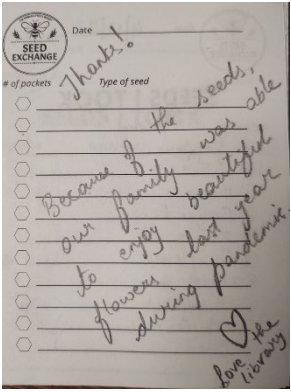 SEED
EXCHANGE
Date
# of packets
Type of seed
Thanks!
Because of the seeds,
our family was able
to enjoy beautiful
flowers last year
during pandemic.
Love the
library